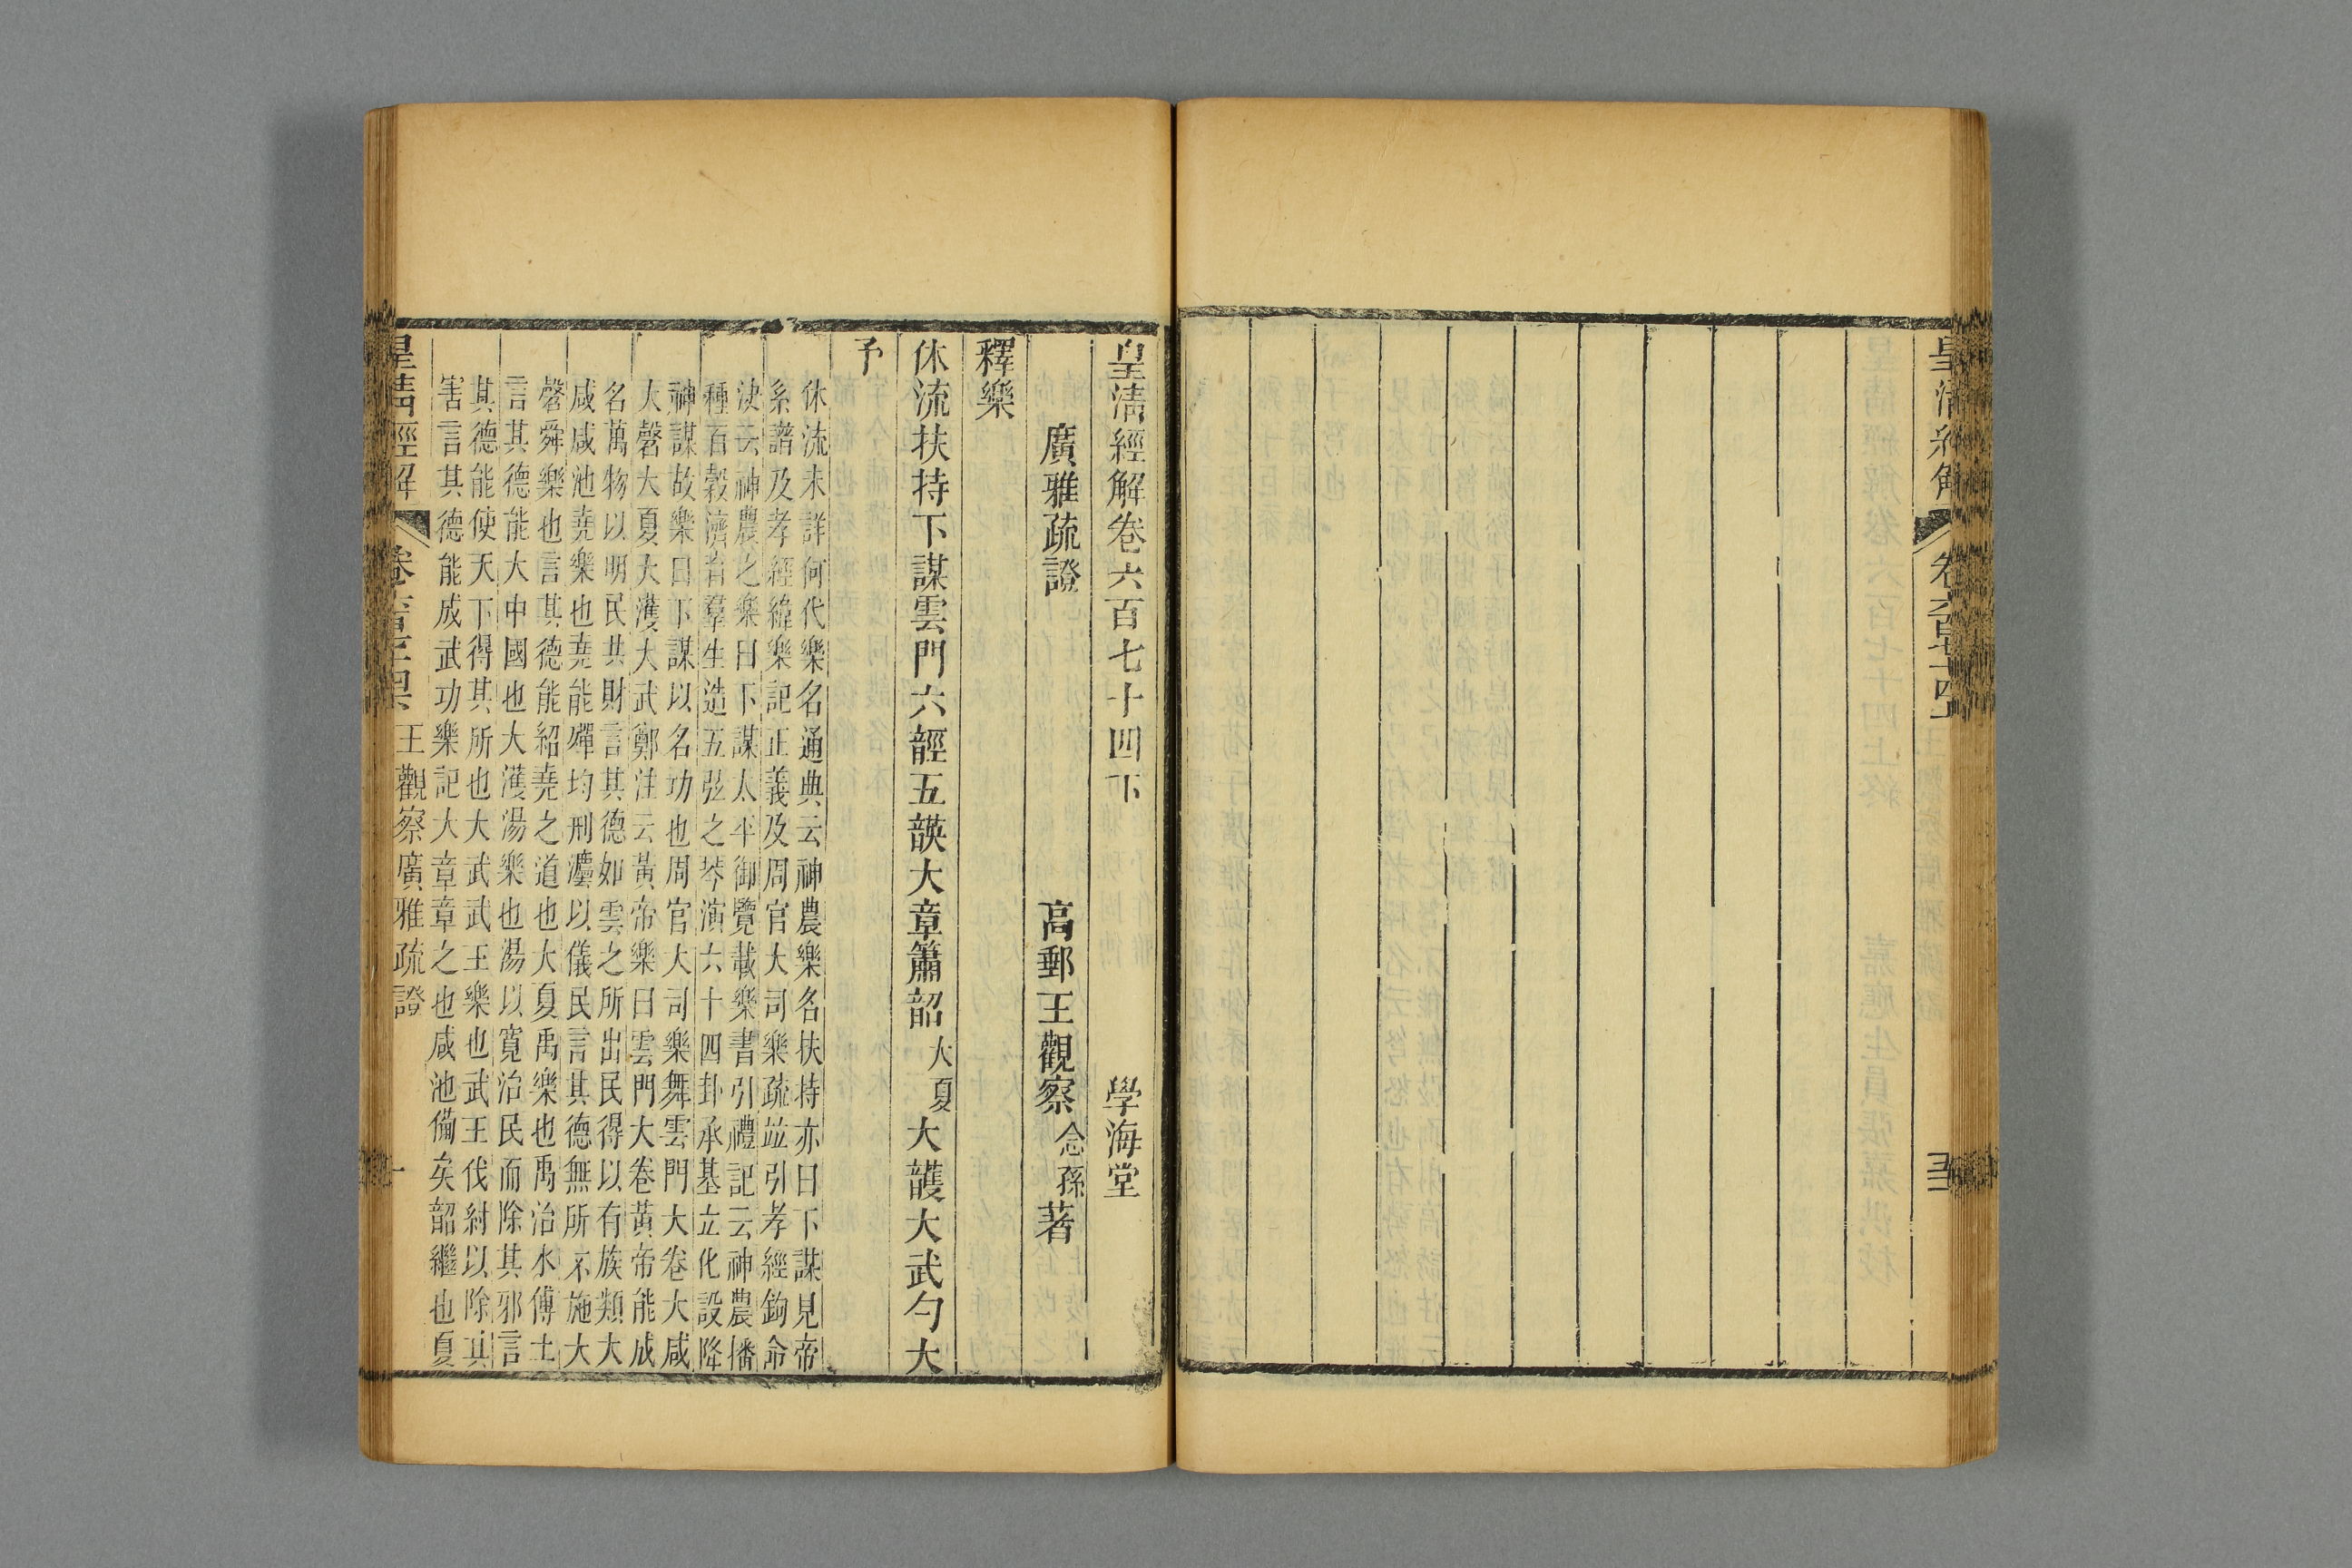 皇清經解
皇清經解卷六百七十四下
學海堂
廣雅疏證
高郵王觀察念孫著
釋樂
休流扶持下謀雲門六䪫五韺大章簫韶大夏大頀大武勺大
予
休流未詳何代樂名通典云神農樂名扶持亦曰下謀見帝
系譜及孝經緯樂記正義及周官大司樂疏竝引孝經鉤命
決云神農之樂曰下謀太平御覽載樂書引禮記云神農播
種百穀濟育羣生造五弦之琴演六十四卦承基立化設降
神謀故樂曰下謀以名功也周官大司樂舞雲門大卷大咸
大磬大夏大濩大武鄭注云黃帝樂曰雲門大卷黃帝能成
名萬物以明民共財言其德如雲之所出民得以有族類大
咸咸池堯樂也堯能殫均刑灋以儀民言其德無所不施大
磬舜樂也言其德能紹堯之道也大夏禹樂也禹治水傅土
言其德能大中國也大濩湯樂也湯以寬治民而除其邪言
其德能使天下得其所也大武武王樂也武王伐紂以除其
害言其德能成武功樂記大章章之也咸池備矣韶繼也夏
皇清經解
王觀察廣雅疏證
一